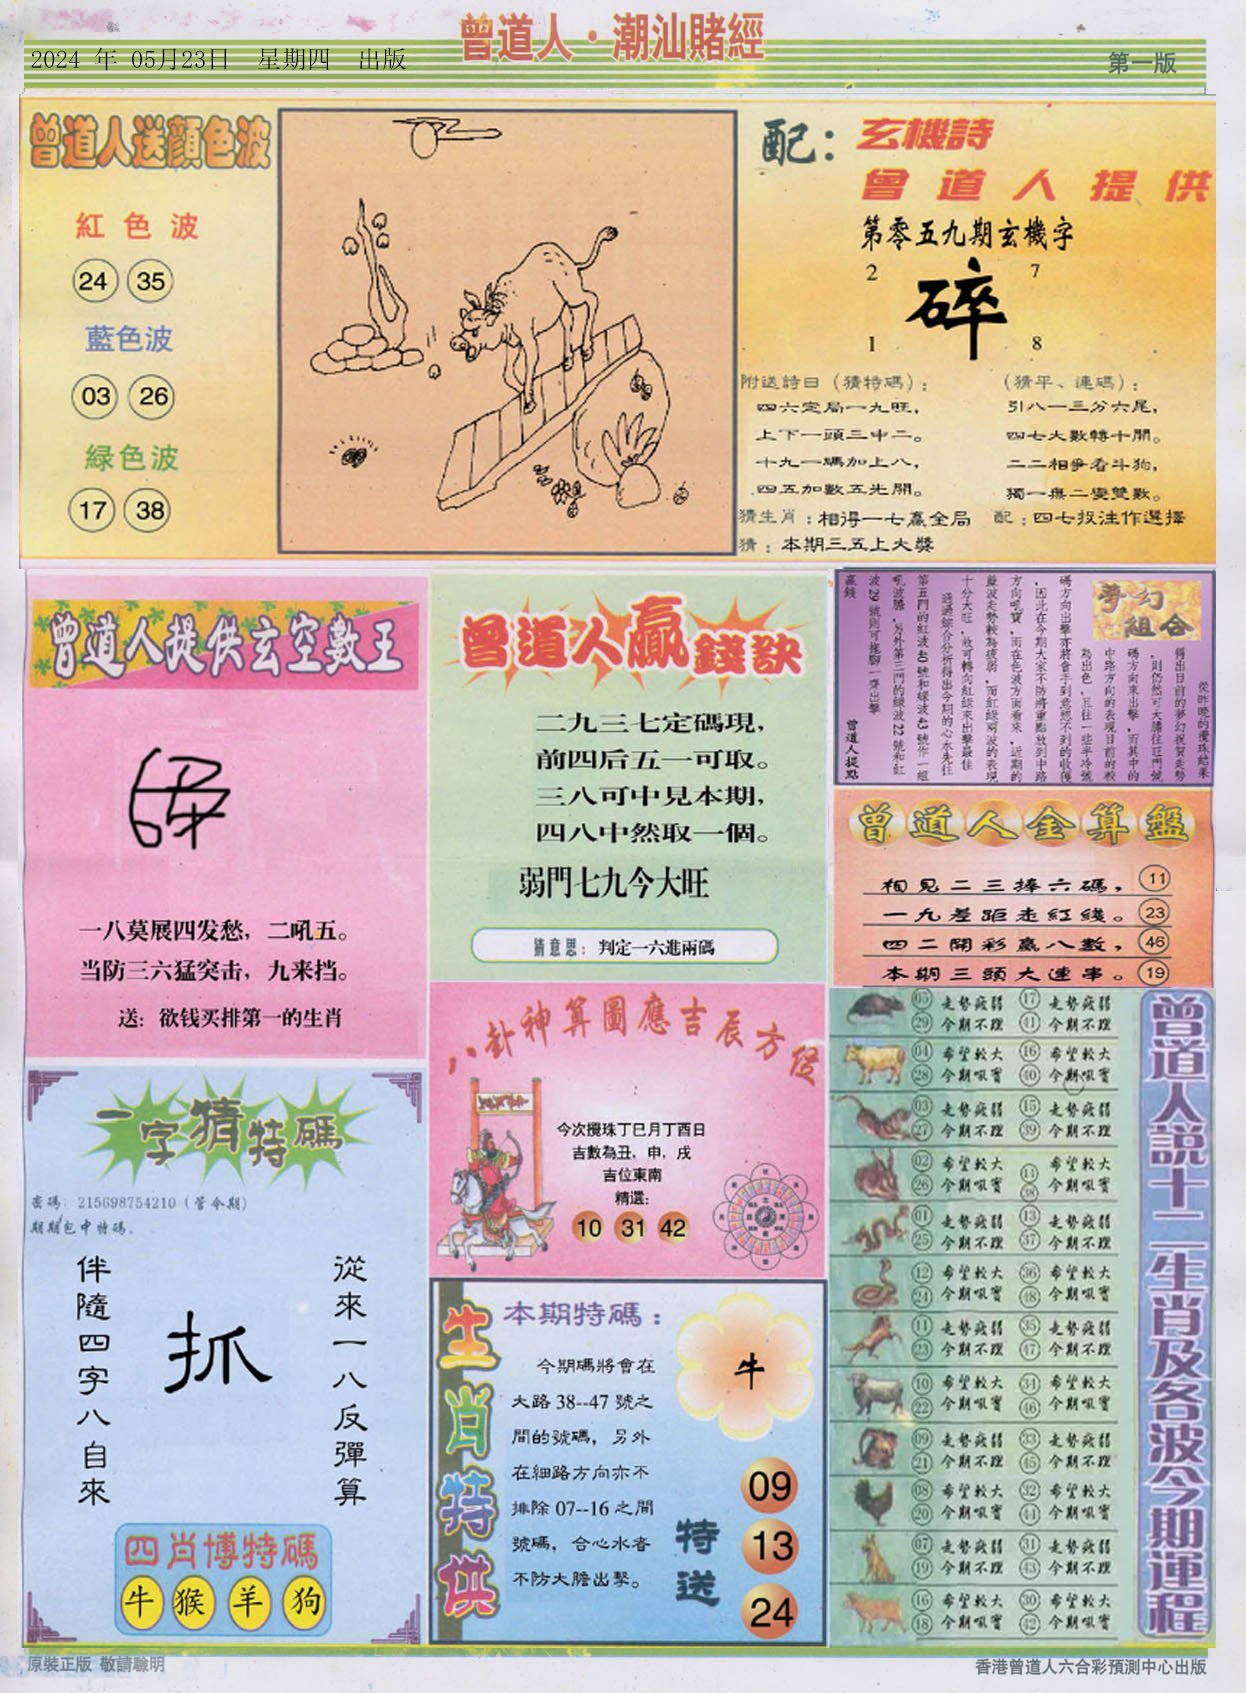 曾道人·潮汕賭經
2024 年 05月23日 星期四 出版
第一版
曾道人送顏色波
紅色波
24 35
藍色波
03 26
緑色波
17 38
配：玄機詩
曾道人提供
第零五九期玄機字
2 7
碎
1 8
附送詩曰（猜特碼）：
四六定局一九旺，
上下一頭三中二。
十九一碼加上八，
四五加數五光開。
（猜平、連碼）：
引八一三分六尾，
四七大數轉十開。
二二相爭看斗狗，
獨一無二變雙數。
猜生肖：相得一七贏全局
配：四七投注作選擇
猜：本期三五上大獎
曾道人提供玄空數王
一八莫展四发愁，二吼五。
当防三六猛突击，九来挡。
送：欲钱买排第一的生肖
曾道人贏錢訣
二九三七定碼現，
前四后五一可取。
三八可中見本期，
四八中然取一個。
弱門七九今大旺
猜意思：判定一六進兩碼
夢幻
組合
從昨晚的攪珠結果
得出目前的夢幻祝賀走勢
，則仍然可大膽往旺門號
碼方向來出擊，而其中的
中路方向的表現目前的較
為出色，且往一些半冷號
碼方向出擊亦將會手到意想不到的收獲
，因此在今期大家不防將重點放到中路
方向吼寶，而在色波方面看來，近期的
藍波走勢較為疲弱，而紅綠兩波的表現
十分大旺，故可轉向紅綠來出擊最佳
通過綜合分析得出今期的心水先往
第五門的紅波40號和綠波43號作一組
吼波膽，另外第三門的綠波22號和紅
波29號則可拖腳一齊出擊
贏錢
曾道人提點
曾道人金算盤
相見二三捧六碼， 11
一九差距走紅綫。 23
四二開彩贏八數， 46
本期三頭大連串。 19
一字猜特碼
密碼：215698754210（管今期）
期期包中特碼。
從來一八反彈算
抓
伴隨四字八自來
四肖博特碼
牛 猴 羊 狗
八卦神算圖應吉辰方位
今次攪珠丁巳月丁酉日
吉數為丑，申，戌
吉位東南
精選：
10 31 42
生肖特供
本期特碼：
今期碼將會在
大路 38--47 號之
間的號碼，另外
在細路方向亦不
排除 07--16 之間
號碼，合心水者
不防大膽出擊。
牛
特送
09
13
24
曾道人説十二生肖及各波今期運程
05 走勢疲弱 17 走勢疲弱
29 今期不理 41 今期不理
04 希望較大 16 希望較大
28 今期吼實 40 今期吼實
03 走勢疲弱 15 走勢疲弱
27 今期不理 39 今期不理
02 希望較大 希望較大
26 今期吼實 38 今期吼實
01 走勢疲弱 13 走勢疲弱
25 今期不理 37 今期不理
12 希望較大 36 希望較大
24 今期吼實 48 今期吼實
11 走勢疲弱 35 走勢疲弱
23 今期不理 47 今期不理
10 希望較大 34 希望較大
22 今期吼實 46 今期吼實
09 走勢疲弱 33 走勢疲弱
21 今期不理 45 今期不理
08 希望較大 32 希望較大
20 今期吼實 44 今期吼實
07 走勢疲弱 31 走勢疲弱
19 今期不理 43 今期不理
16 希望較大 30 希望較大
18 今期吼實 42 今期吼實
原裝正版 敬請聯明
香港曾道人六合彩預測中心出版